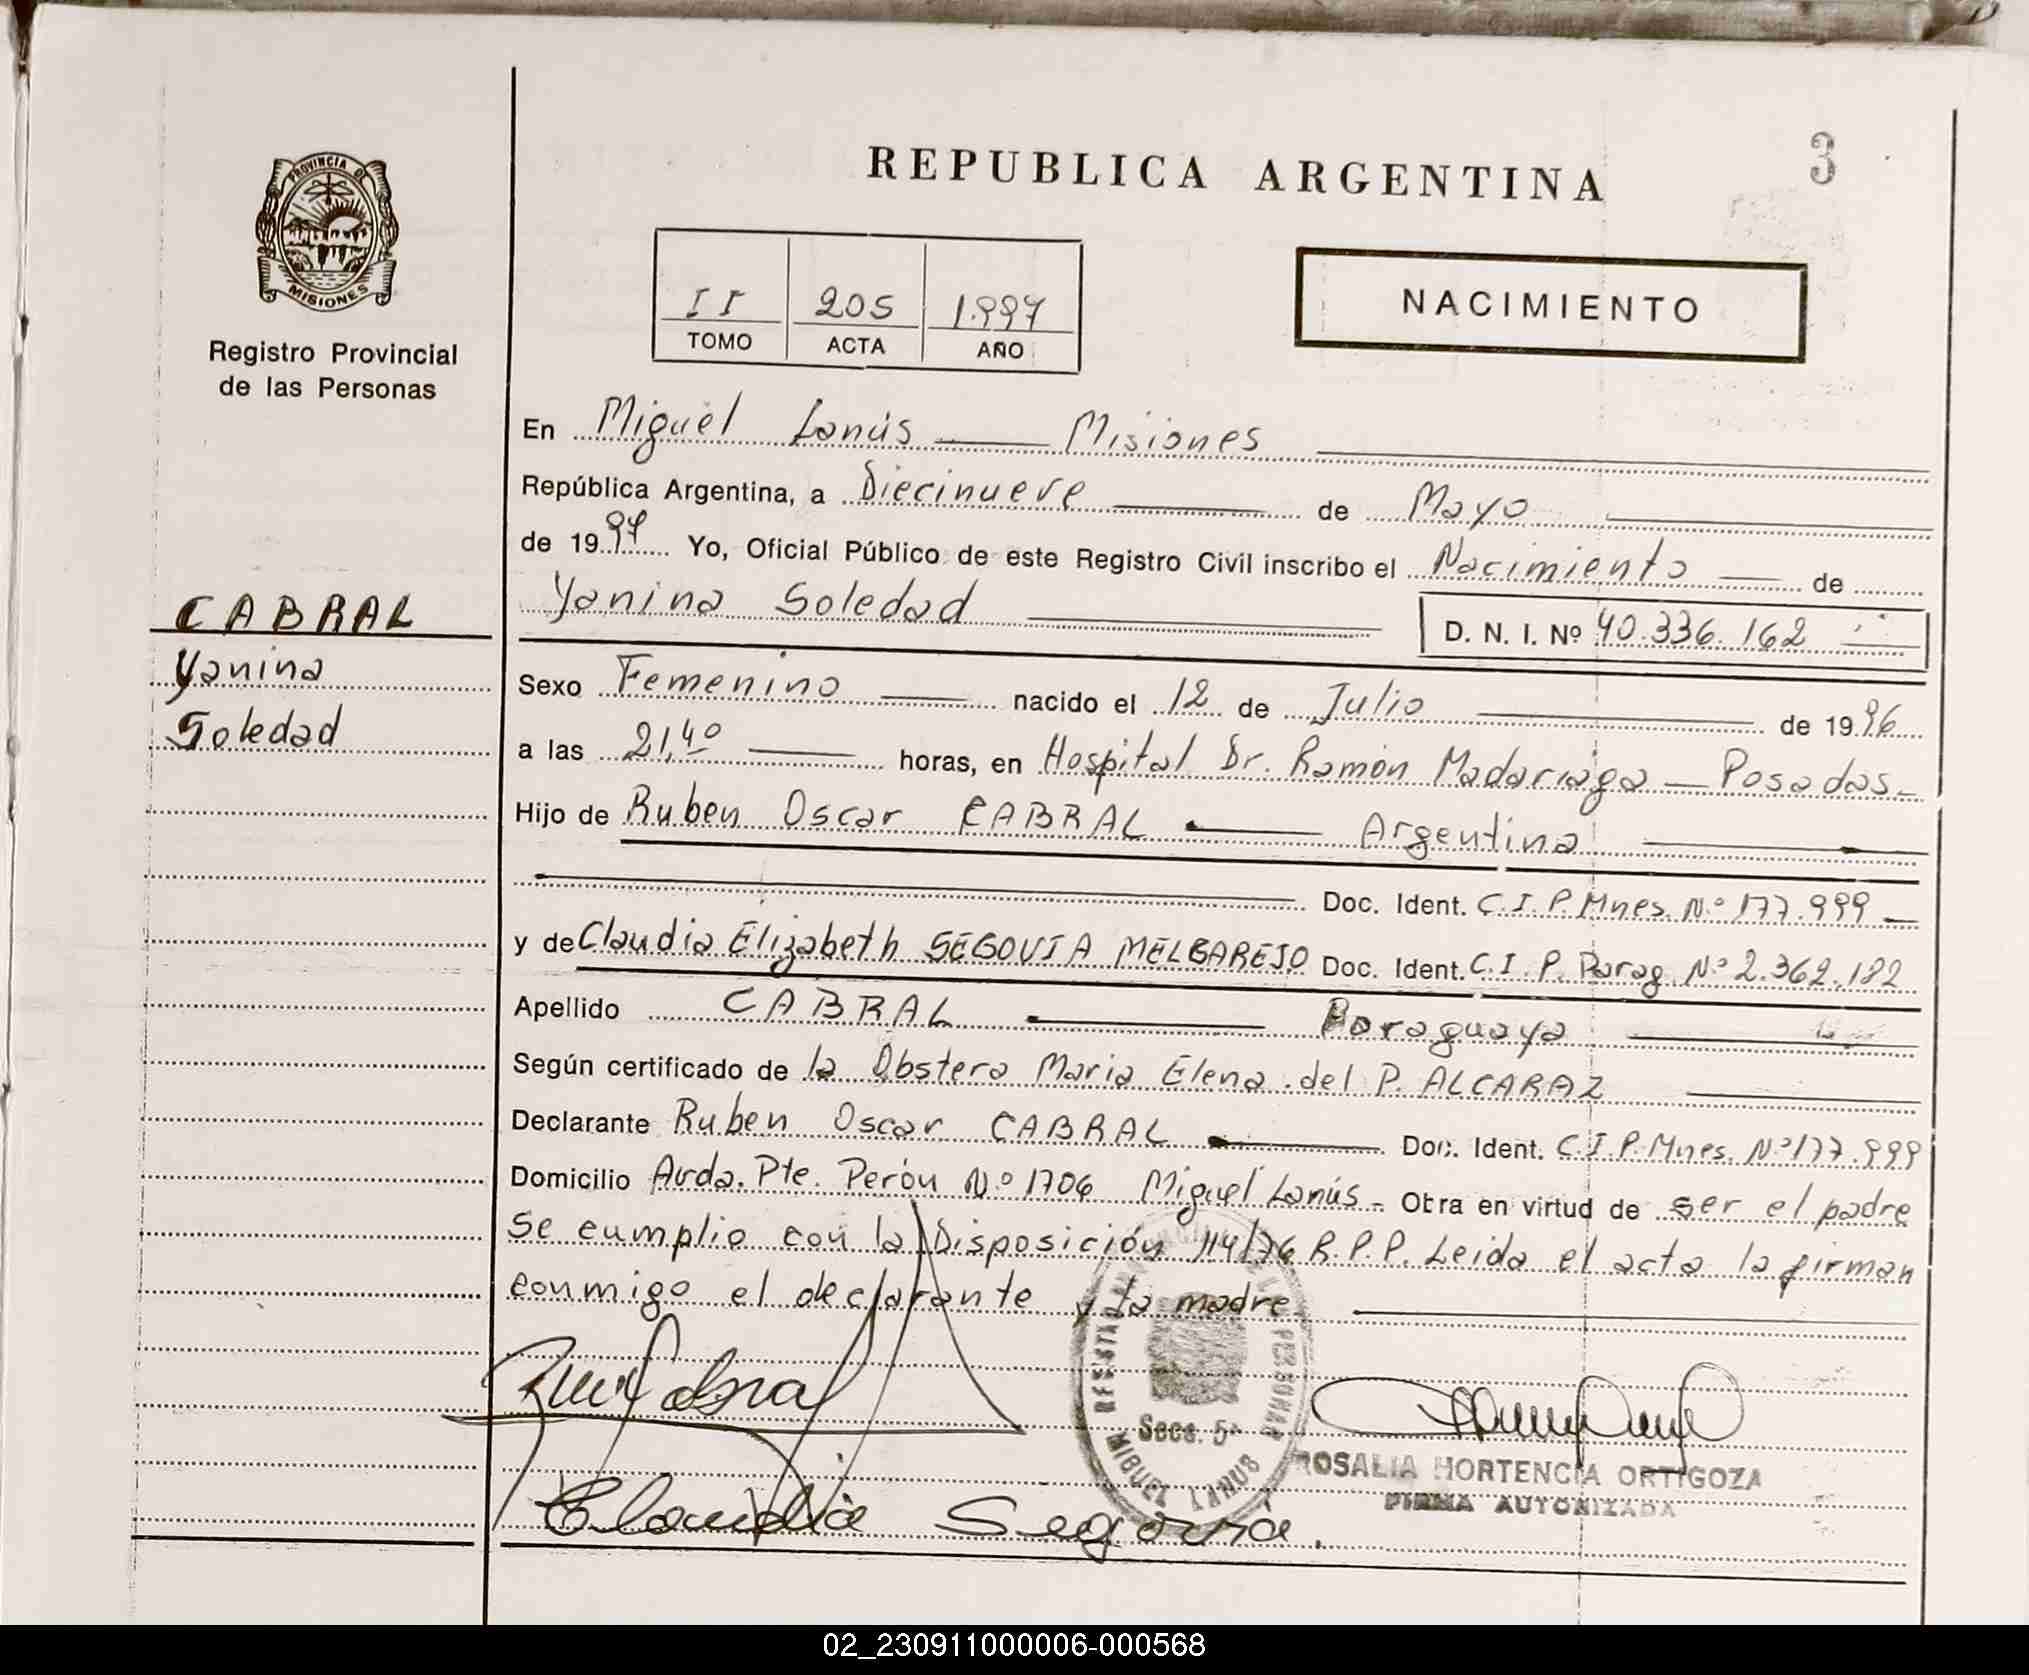 REPUBLICA ARGENTINA
3
PROVINCIA DE
MISIONES
Registro Provincial
de las Personas
II 205 1.997
TOMO ACTA AÑO
NACIMIENTO
En Miguel Lanús Misiones
República Argentina, a Diecinueve de Mayo
de 1997 Yo, Oficial Público de este Registro Civil inscribo el Nacimiento de
Yanina Soledad D. N. I. Nº 40.336.162
CABRAL
Yanina
Soledad
Sexo Femenino nacido el 12 de Julio de 1996
a las 21,40 horas, en Hospital Dr. Ramón Madariaga — Posadas.
Hijo de Ruben Oscar CABRAL Argentina
Doc. Ident. C.I.P. Mnes. N.º 177.999
y de Claudia Elizabeth SEGOVIA MELGAREJO Doc. Ident. C.I.P. Parag. N.º 2.362.182
Apellido CABRAL Paraguaya
Según certificado de la Obstera Maria Elena del P. ALCARAZ
Declarante Ruben Oscar CABRAL Doc. Ident. C.I.P. Mnes. Nº 177.999
Domicilio Avda. Pte. Perón N.º 1706 Miguel Lanús. Obra en virtud de ser el padre
Se cumplio con la Disposición 114/76 R.P.P. Leida el acta la firman
conmigo el declarante y la madre
Secc. 5ª
MIGUEL LANUS
ROSALIA HORTENCIA ORTIGOZA
FIRMA AUTORIZADA
Claudia Segovia
02_230911000006-000568